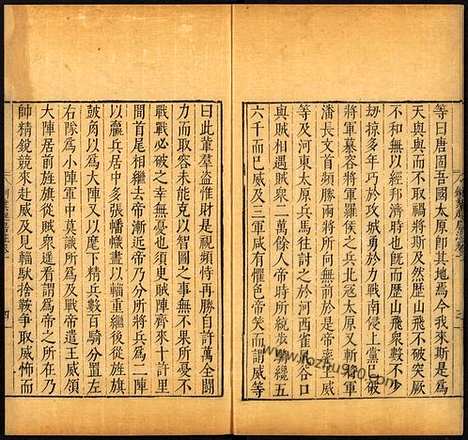 等曰唐固吾國太原即其地焉今我來斯是爲
天與與而不取禍將斯及然歷山飛不破突厥
不和無以經邦濟時也既而歷山飛衆數不少
刼掠多年巧於攻城勇於力戰南侵上黨已破
將軍慕容將軍羅侯之兵北寇太原又斬將軍
潘長文首頻勝兩將所向無前於是帝率王威
等及河東太原兵馬往討之於河西雀鼠谷口
與賊相遇賊衆二萬餘人帝時所統步騎纔五
六千而已威及三軍咸有懼色帝笑而謂威等
曰此輩羣盜惟財是視頻恃再勝自許萬全鬭
力而取容未能克以智圖之事無不果所憂不
戰戰必破之幸無憂也須臾賊陣齊來十許里
間首尾相繼去帝漸近帝乃分所將兵爲二陣
以羸兵居中多張幡幟盡以輜重繼後從旌旗
鼓角以爲大陣又以麾下精兵數百騎分置左
右隊爲小陣軍中莫識所爲及戰帝遣王威領
大陣居前旌旗從賊衆遙看謂爲帝之所在乃
帥精銳競來赴威及見輜馱捨鞍爭取威怖而